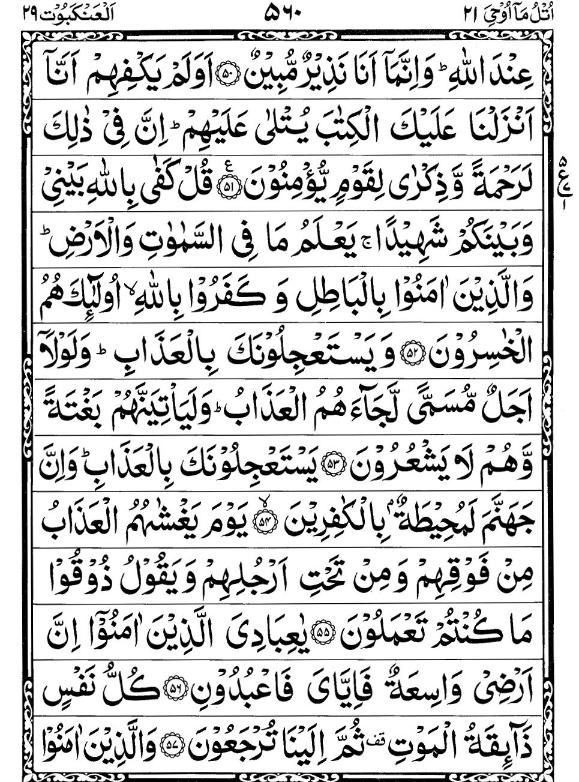 اُتْلُ مَاۤ اُوْحِیَ ۲۱
۵۶۰
اَلْعَنْكَبُوْت ۲۹
عِنْدَ اللّٰهِ ؕ وَاِنَّمَاۤ اَنَا نَذِیْرٌ مُّبِیْنٌ ﴿۵۰﴾ اَوَلَمْ یَكْفِهِمْ اَنَّاۤ
اَنْزَلْنَا عَلَیْكَ الْكِتٰبَ یُتْلٰی عَلَیْهِمْ ؕ اِنَّ فِیْ ذٰلِكَ
لَرَحْمَةً وَّ ذِكْرٰی لِقَوْمٍ یُّؤْمِنُوْنَ ﴿۵۱﴾ ع قُلْ كَفٰی بِاللّٰهِ بَیْنِیْ
۵
ع
۱
وَبَیْنَكُمْ شَهِیْدًا ۚ یَعْلَمُ مَا فِی السَّمٰوٰتِ وَالْاَرْضِ ؕ
وَالَّذِیْنَ اٰمَنُوْا بِالْبَاطِلِ وَ كَفَرُوْا بِاللّٰهِ ۙ اُولٰٓئِكَ هُمُ
الْخٰسِرُوْنَ ﴿۵۲﴾ وَ یَسْتَعْجِلُوْنَكَ بِالْعَذَابِ ؕ وَلَوْلَاۤ
اَجَلٌ مُّسَمًّی لَّجَآءَهُمُ الْعَذَابُ ؕ وَلَیَاْتِیَنَّهُمْ بَغْتَةً
وَّهُمْ لَا یَشْعُرُوْنَ ﴿۵۳﴾ یَسْتَعْجِلُوْنَكَ بِالْعَذَابِ ؕ وَاِنَّ
جَهَنَّمَ لَمُحِیْطَةٌۢ بِالْكٰفِرِیْنَ ﴿۵۴﴾ ۙ یَوْمَ یَغْشٰىهُمُ الْعَذَابُ
مِنْ فَوْقِهِمْ وَمِنْ تَحْتِ اَرْجُلِهِمْ وَیَقُوْلُ ذُوْقُوْا
مَا كُنْتُمْ تَعْمَلُوْنَ ﴿۵۵﴾ یٰعِبَادِیَ الَّذِیْنَ اٰمَنُوْۤا اِنَّ
اَرْضِیْ وَاسِعَةٌ فَاِیَّایَ فَاعْبُدُوْنِ ﴿۵۶﴾ كُلُّ نَفْسٍ
ذَآىِٕقَةُ الْمَوْتِ قف ثُمَّ اِلَیْنَا تُرْجَعُوْنَ ﴿۵۷﴾ وَالَّذِیْنَ اٰمَنُوْا